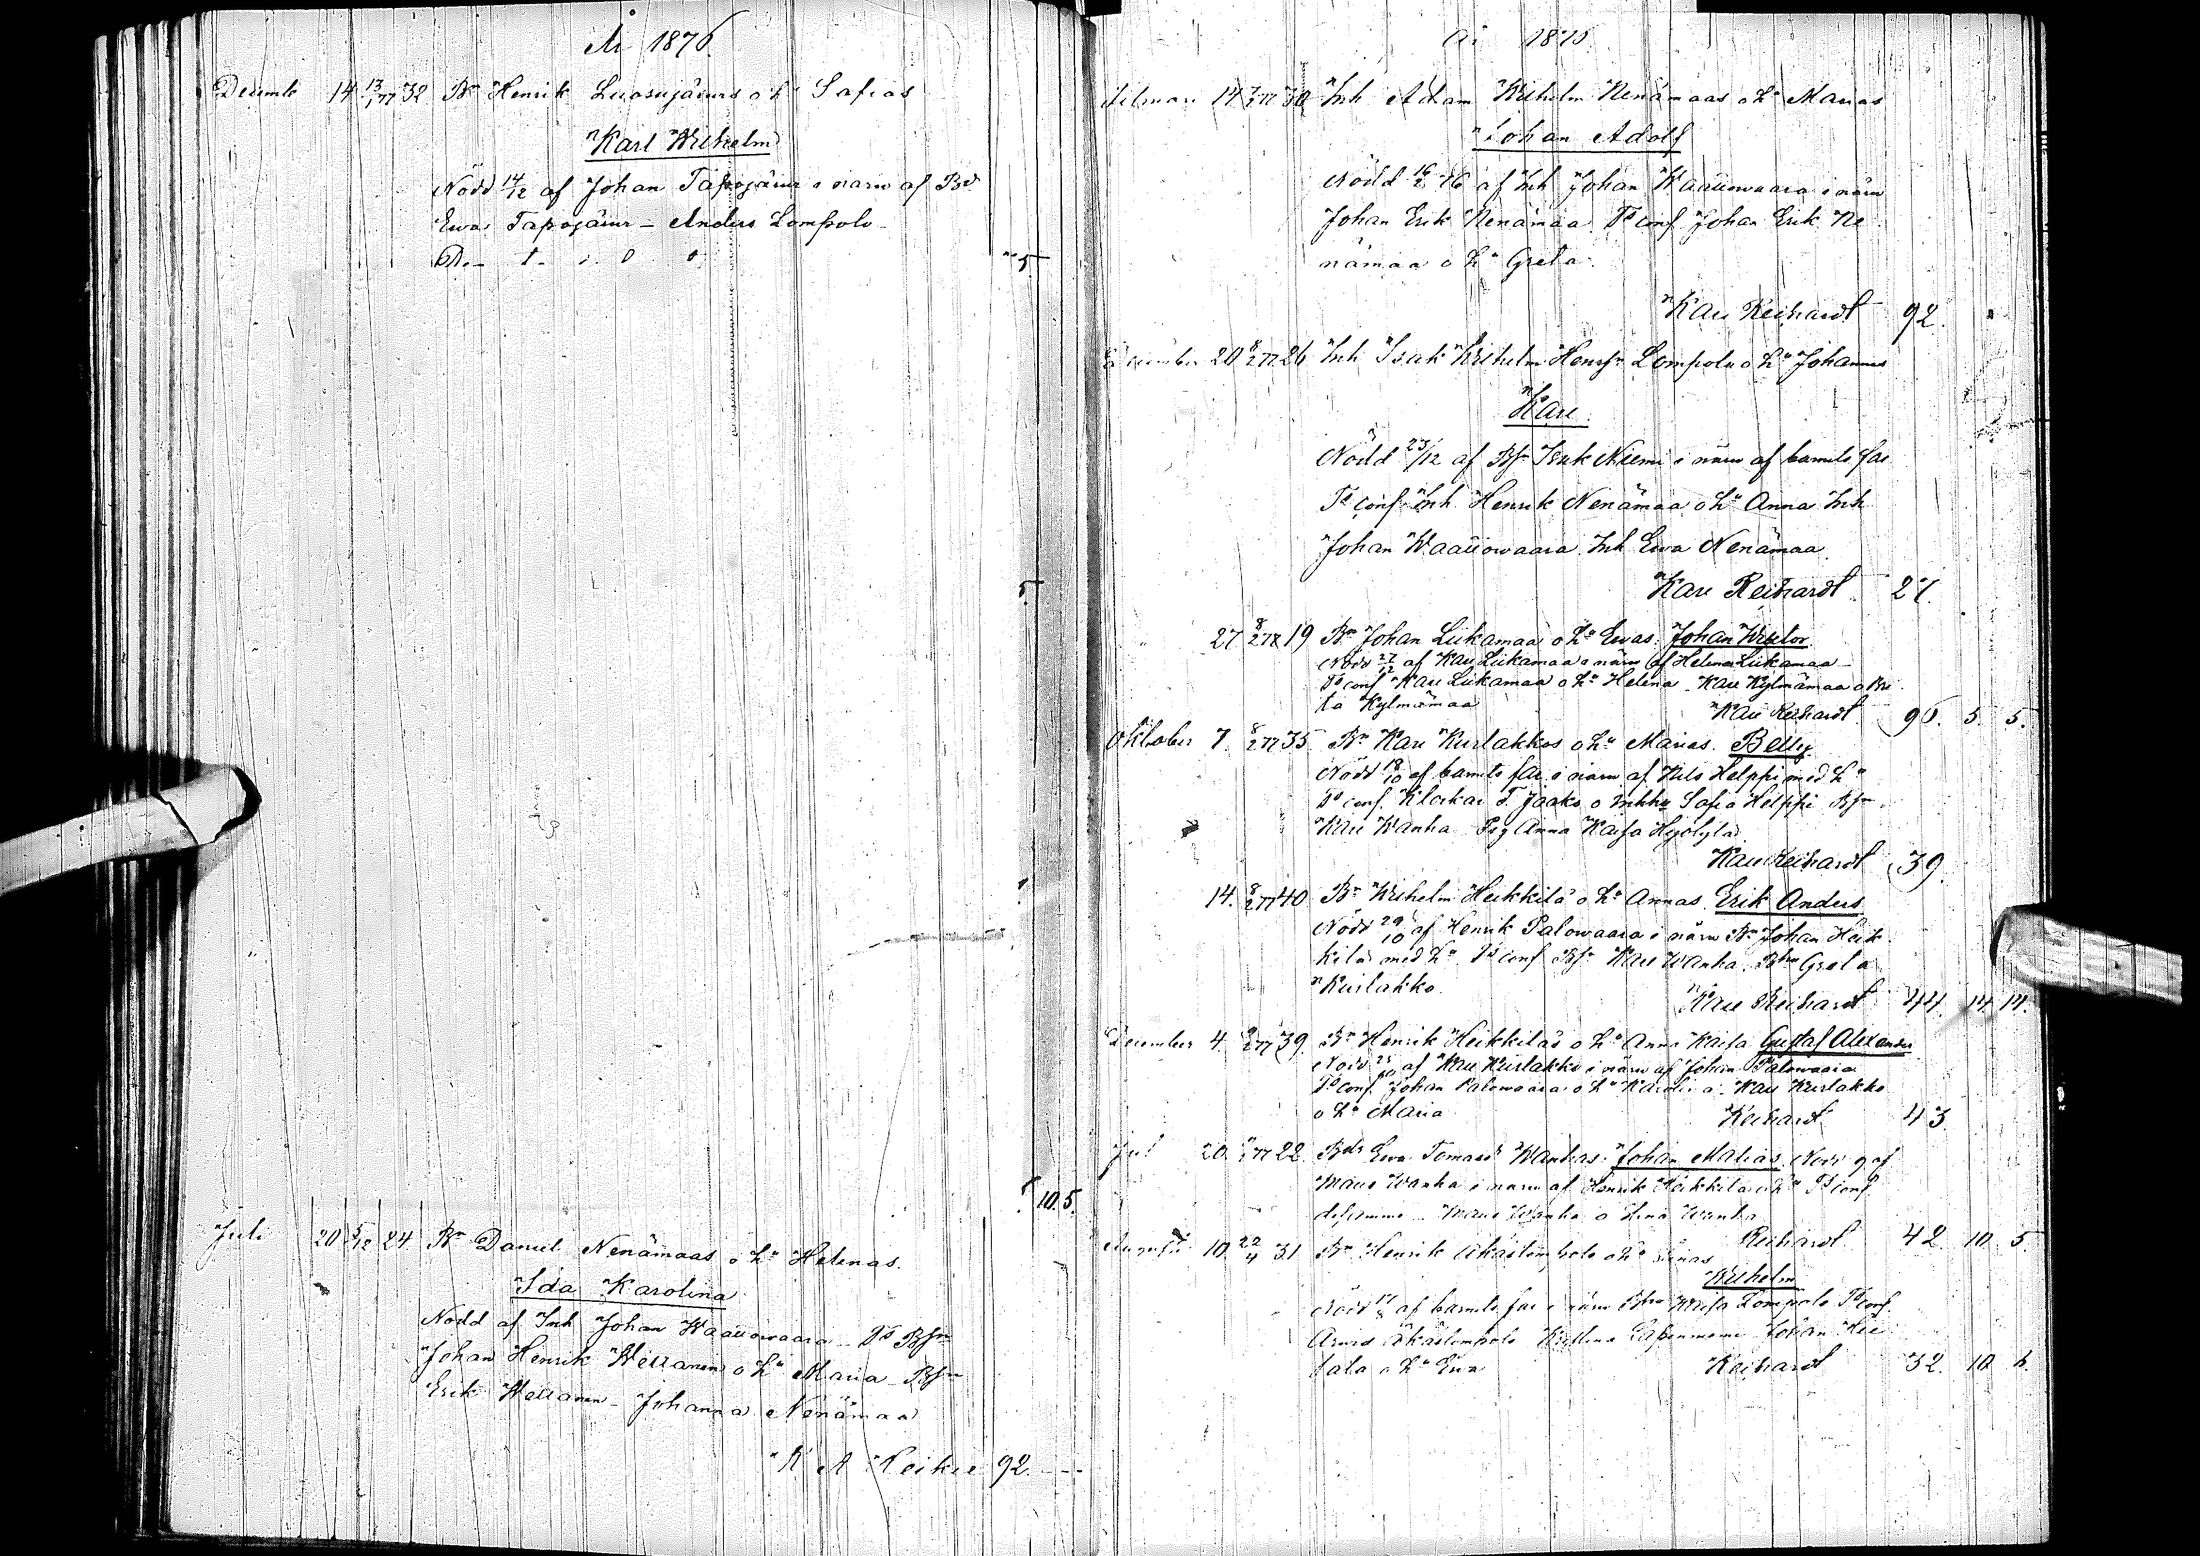 År 1876
Decemb 14 13/1 77 32 Bn Henrik Luosujärvis o h Safias
Karl Wilhelm
Nödd 14/12 af Johan Tapojärvi i närw af Bd
Ewa Tapojärvi - Anders Lompolo
5
5
5 10. 5.
Juli 20 5/12 24 Bn Daniel Nenämaas o hu Helenas
Ida Karolina
Nödd af Inh Johan Waaiiowaara Td Bsn
Johan Henrik Wettanen o hu Maria Bsn
Erik Wettanen - Johanna Nenämaa
K A Heikel 92.
År 1876
14 30 Inh Adam Wilhelm Nenämaas o hu Marias
Johan Adolf
Nödd 16/2 76 af Inh Johan Waaiiowaara i närw
Johan Erik Nenämaa Td conf Johan Erik Ne
nämaa o hu Greta
Karl Reihardt 92.
December 20 8/2 77 26 Inh Isak Wilhelm Henrsn Lompolo o hu Johannas
Karl
Nödd 23/12 af Bsn Isak Niemi i närw af barnets far
Td conf Inh Henrik Nenämaa o hu Anna Inh
Johan Waaiiowaara Inh Ewa Nenämaa
Karl Reihardt 27.
27 8/2 78 19 Bn Johan Liikamaas o hu Ewas Johan Wiktor
Nödd 27/12 af Karl Liikamaa i närw af Helena Liikamaa
Td conf Karl Liikamaa o hu Helena Karl Kylmämaa o Bri
ta Kylmämaa Karl Reihardt 96. 5 5.
Oktober 7. 8/2 77 35 Bn Karl Kurlakkos o hu Marias. Betty
Nödd 18/10 af barnets far i närw af Nils Helppi med hu
Td conf. Klockar F. Jaako o Inhhu Safia Helppi Bsn
Karl Wanha Pig Anna Kaisa Hyölylä
Karl Reihardt 39.
14. 8/2 77 40 Bn Wilhelm Heikkilä o hu Annas Erik Anders
Nödd 29/10 af Henrik Palowaara i närw Bn Johan Heik
kilä med hu Td conf Bsn Karl Wanha Bhu Greta
Kurlakko
Karl Reihardt 44. 14 14.
December 4. 8/2 77 39. Bn Henrik Heikkiläs o hu Anna Kaisa Gustaf Alexander
Nödd 25/10 af Karl Kurlakko i närw af Johan Palowaara
Td conf. Johan Palowaara o hu Karoli a Karl Kurlakko
o hu Maria Reihardt 43
Jul 20. 77 22 Bdr Ewa Tomasdr Wanhas Johan Matias Nödd 9 af
Maria Wanha i närw af Henrik Heikkilä o hu Td conf
desamme Maria Wanha o Wanha
Reihardt 42. 10 5.
Augusti 10. 22/4 31 Bn Henrik Äkäslompolo o hu
Wilhelm
Nödd 17/8 af barnets far i närw Bhu Kaisa Lompolo Td conf.
Äkäslompolo Johan Hie
tala o hu Ewa Reihardt 32. 10